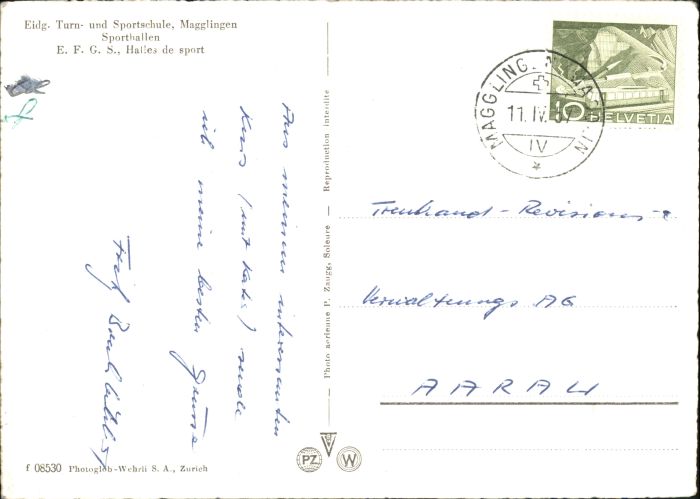 Eidg. Turn- und Sportschule, Magglingen
Sporthallen
E. F. G. S., Halles de sport
Aus meinem interessanten
Kurs (mit Kater) sende
ich meine besten Grüsse
Fritz
Reproduction interdite
Photo aérienne P. Zaugg, Soleure
MAGGLINGEN MACOLIN
11. IV. 57
IV
10 HELVETIA
Treuhand-Revisions-&
Verwaltungs AG
AARAU
f 08530 Photoglob-Wehrli S. A., Zurich
PZ
W